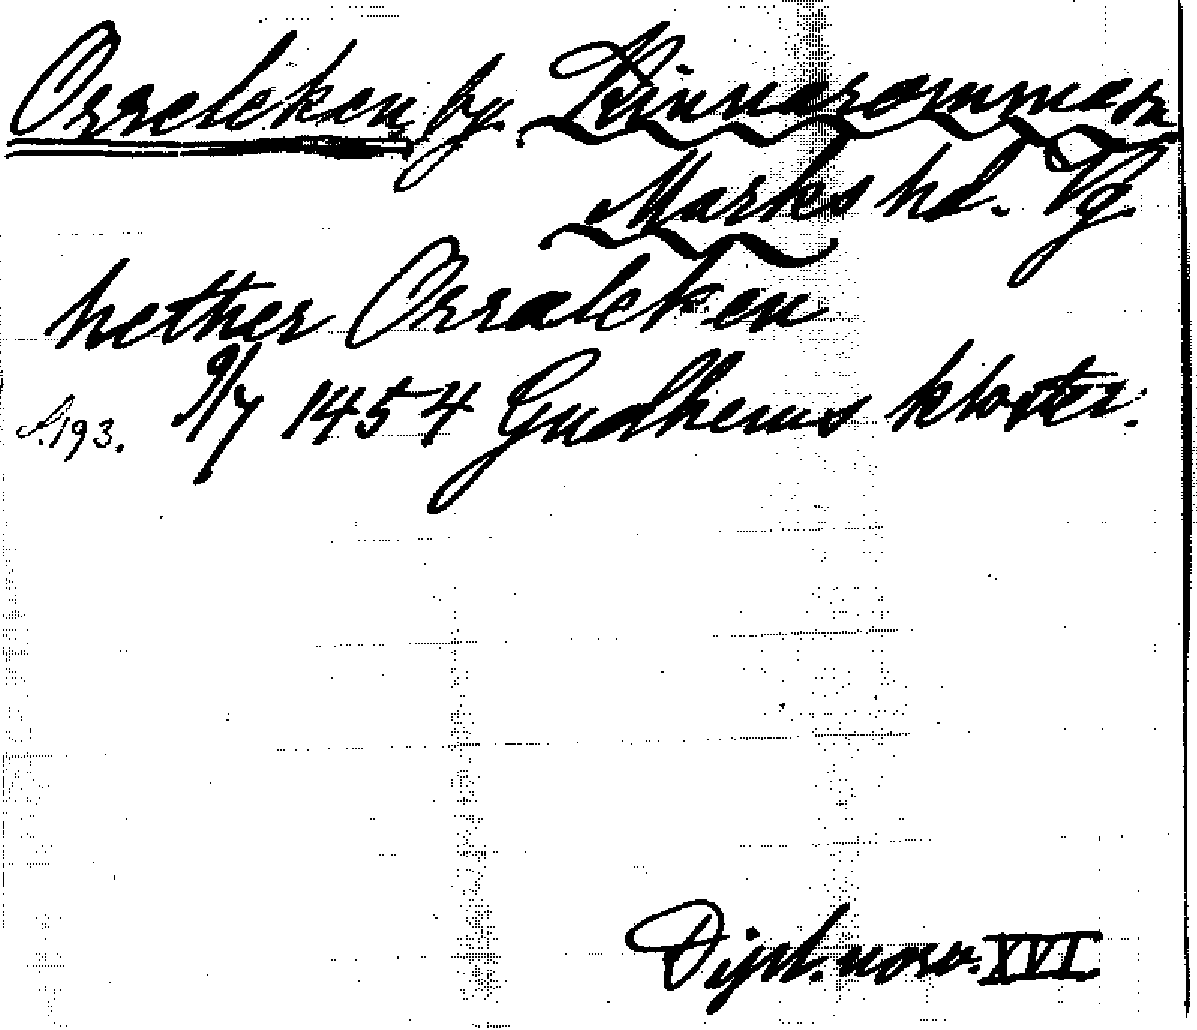 Orraleken by. Kinnarumma sn
Marks hd. Vg.
hether Orraleken
9/7 1454 Gudhems kloster.
s. 193.
Dipl. norv. XVI